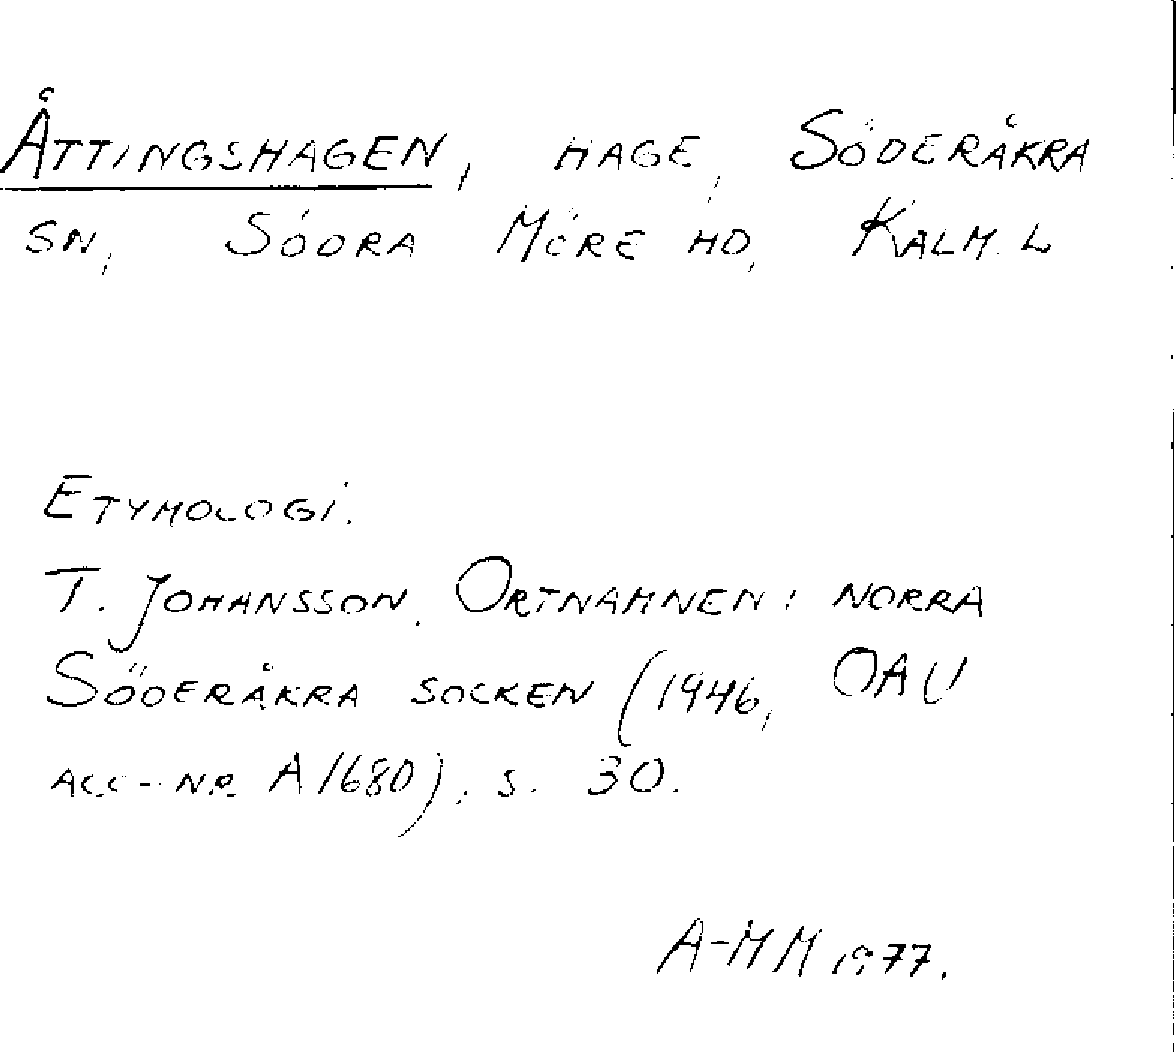 Åttingshagen, hage, Söderåkra
sn, Södra Möre hd, Kalm. l
Etymologi.
T. Johansson, Ortnamnen i norra
Söderåkra socken (1946, OAU
acc-nr A 1680), s. 30.
A-MM 1977.